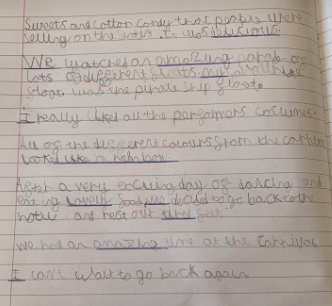 Sweets and cotton candy that people were
selling on the way. It was delicious.
We watched an amazing parade of
lots of different floats. my favourite
float was the pirate ship float.
I really liked all the performers costumes
All of the different colours from the carnival
looked like a rainbow.
After a very exciting day of dancing and
eating lovely food we decided to go back to the
hotel and rest our tired feet.
We had an amazing time at the carnival.
I can't wait to go back again